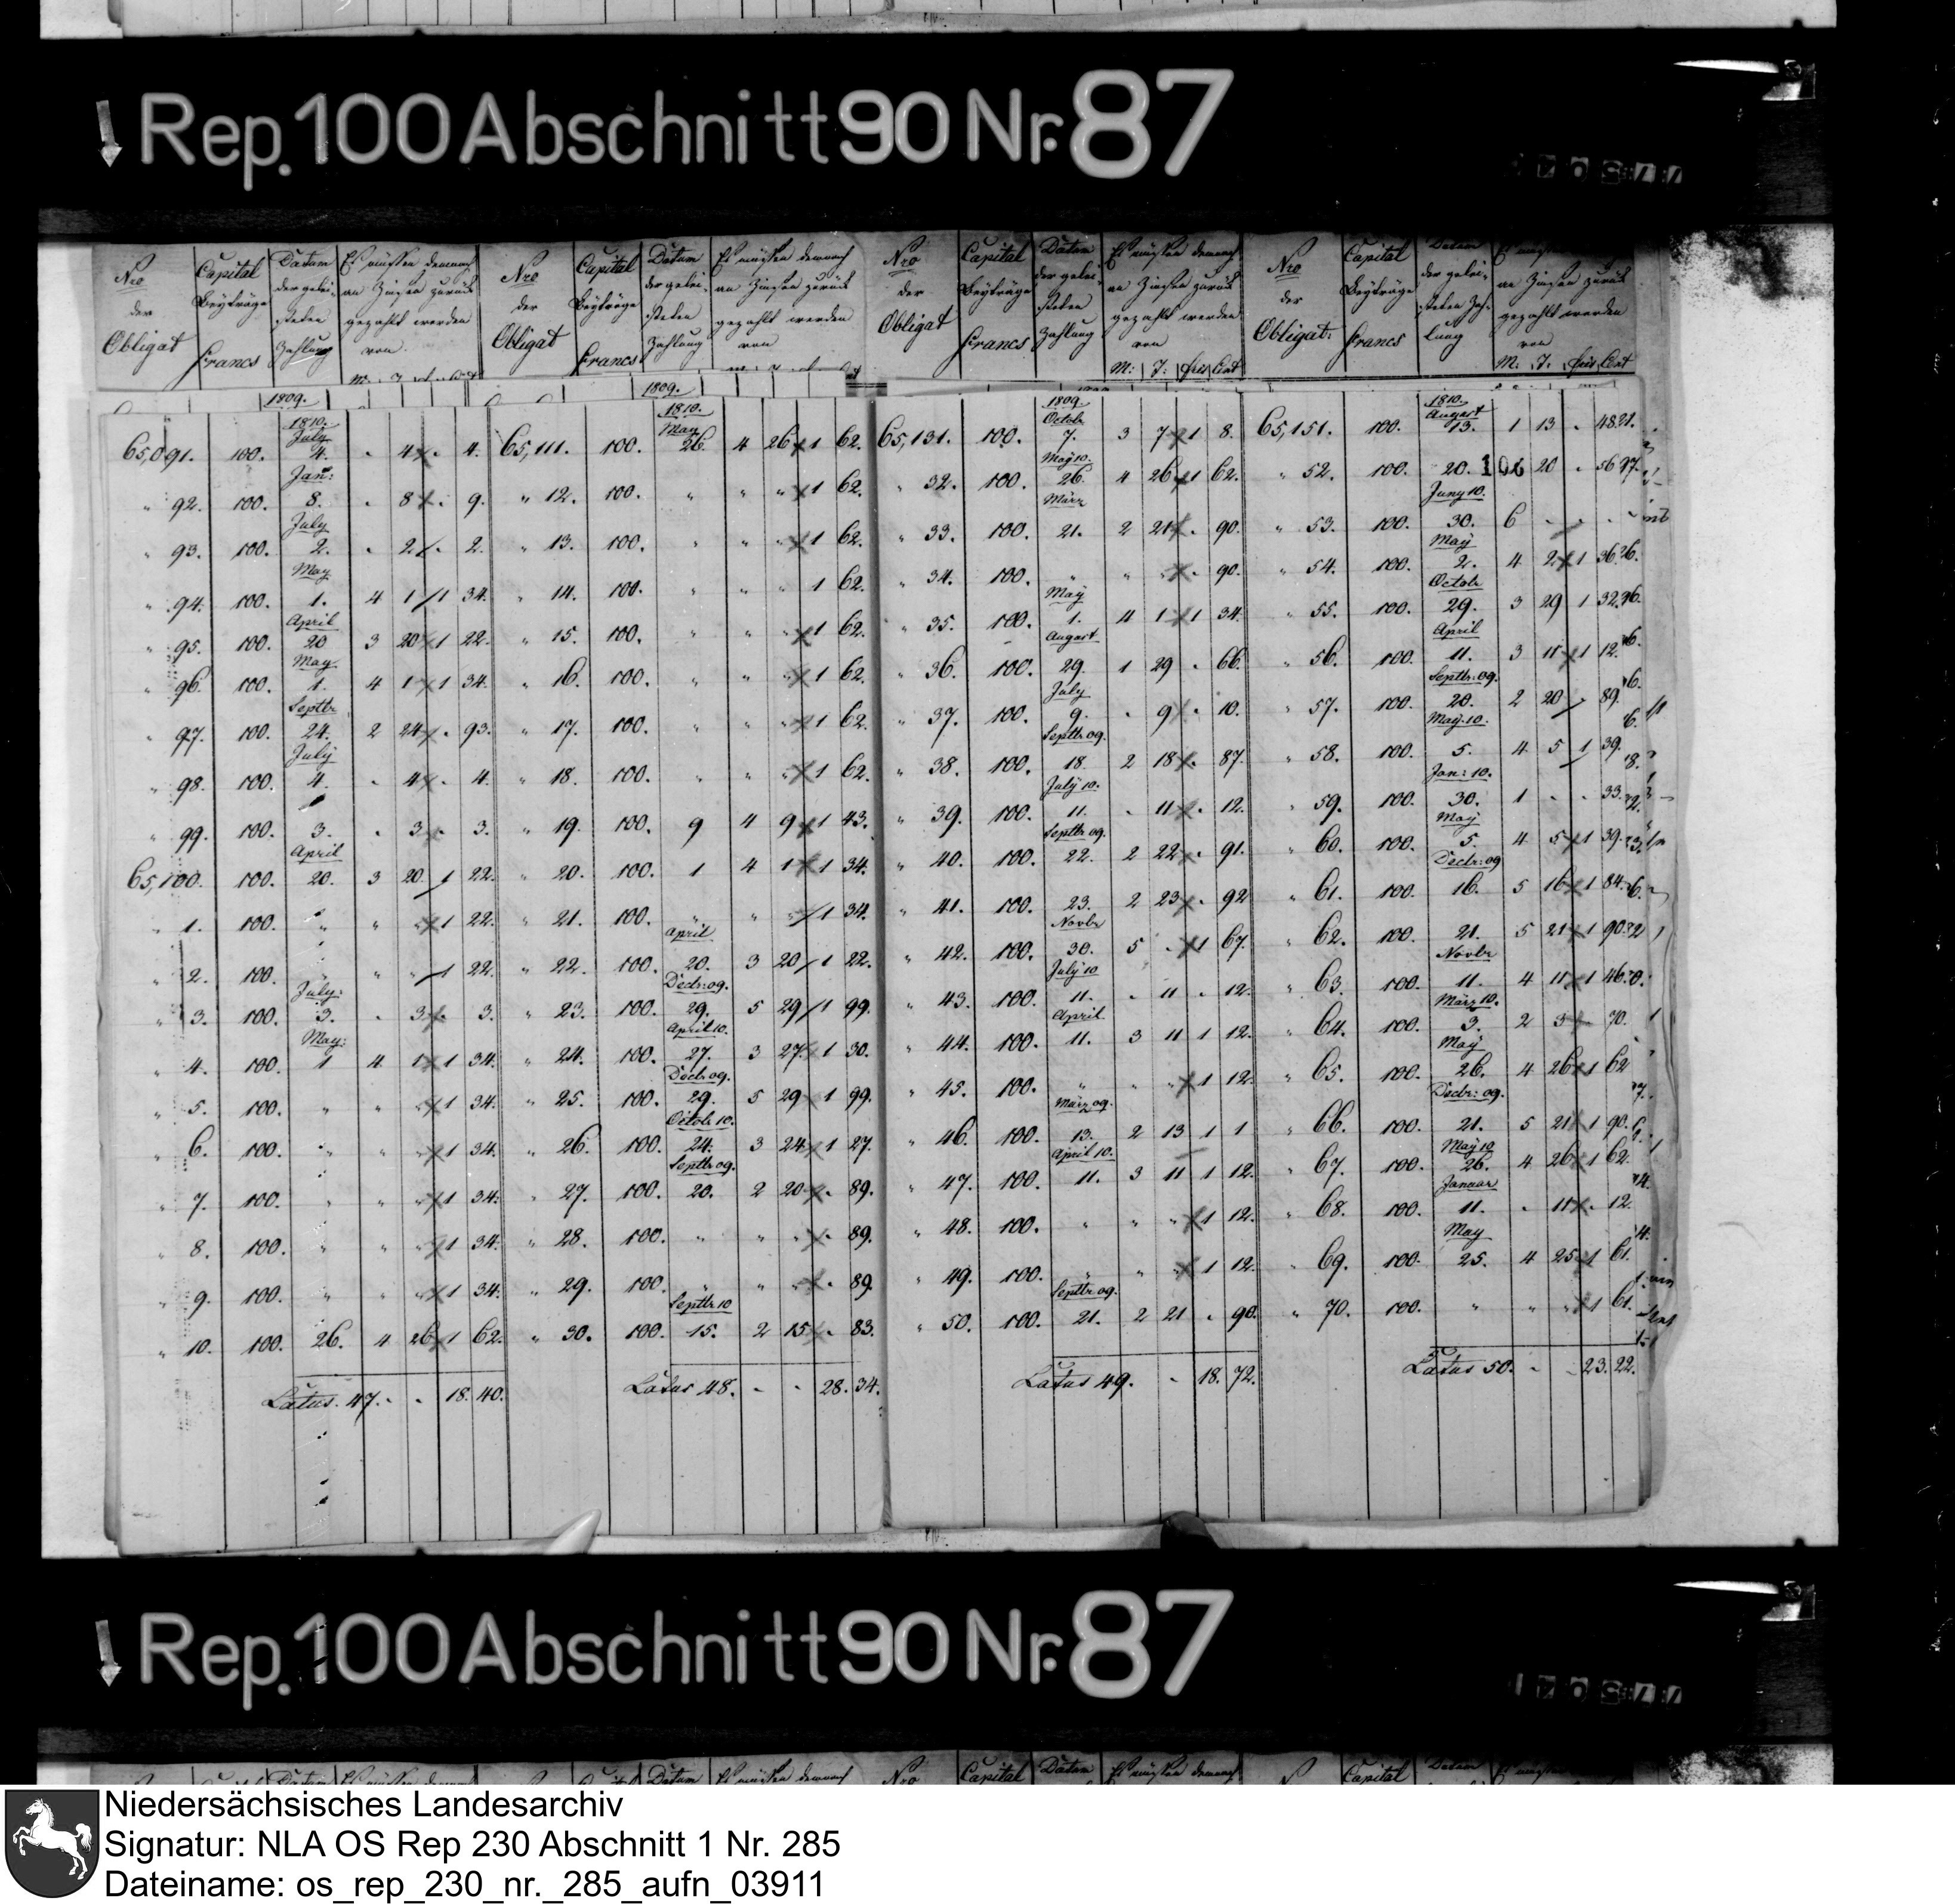 Rep. 100 Abschnitt 90 Nr. 87
Nro der Obligat | Capital Beyträge Francs | Datum der gelei- steten Zahlung | Es müssen demnach an Zinsen zurück gezahlt werden von
Nro der Obligat | Capital Beyträge Francs | Datum der gelei- steten Zahlung | Es müssen demnach an Zinsen zurück gezahlt werden von
Nro der Obligat | Capital Beyträge Francs | Datum der gelei- steten Zahlung | Es müssen demnach an Zinsen zurück gezahlt werden von M: | T: | frcs | Cent
Nro der Obligat: | Capital Beyträge Francs | Datum der gelei- steten Zah- lung | an Zinsen zurück gezahlt werden von M: | T: | frcs | Cent
1809.
1810.
July
65,091. 100. 4. . 4 . 4.
Jan:
" 92. 100. 8. . 8 . 9.
July
" 93. 100. 2. . 2 . 2.
May
" 94. 100. 1. 4 1 1 34.
April
" 95. 100. 20 3 20 1 22.
May
" 96. 100. 1. 4 1 1 34.
Septbr
" 97. 100. 24. 2 24 . 93.
July
" 98. 100. 4. . 4 . 4.
" 99. 100. 3. . 3 . 3.
April
65,100. 100. 20. 3 20 1 22.
" 1. 100. " " " 1 22.
" 2. 100. " " " 1 22.
July:
" 3. 100. 3. . 3 . 3.
May:
" 4. 100. 1 4 1 1 34.
" 5. 100. " " " 1 34.
" 6. 100. " " " 1 34.
" 7. 100. " " " 1 34.
" 8. 100. " " " 1 34.
" 9. 100. " " " 1 34.
" 10. 100. 26. 4 26 1 62.
Latus. 47. - - 18. 40.
1809.
1810.
May
65,111. 100. 26. 4 26 1 62.
" 12. 100. " " " 1 62.
" 13. 100. " " " 1 62.
" 14. 100. " " " 1 62.
" 15. 100. " " " 1 62.
" 16. 100. " " " 1 62.
" 17. 100. " " " 1 62.
" 18. 100. " " " 1 62.
" 19. 100. 9 4 9 1 43.
" 20. 100. 1 4 1 1 34.
" 21. 100. " " " 1 34.
April
" 22. 100. 20. 3 20 1 22.
Decbr: 09.
" 23. 100. 29. 5 29 1 99.
April 10.
" 24. 100. 27. 3 27 1 30.
Decbr 09.
" 25. 100. 29. 5 29 1 99.
Octob 10.
" 26. 100. 24. 3 24 1 27.
Septbr 09.
" 27. 100. 20. 2 20 . 89.
" 28. 100. " " " . 89.
" 29. 100. " " " . 89.
Septbr 10
" 30. 100. 15. 2 15 . 83.
Latus 48. - - 28. 34.
1809.
Octobr
65,131. 100. 7. 3 7 1 8.
May 10.
" 32. 100. 26. 4 26 1 62.
März
" 33. 100. 21. 2 21 . 90.
" 34. 100. " " " . 90.
May
" 35. 100. 1. 4 1 1 34.
August
" 36. 100. 29. 1 29 . 66.
July
" 37. 100. 9. . 9 . 10.
Septbr 09.
" 38. 100. 18. 2 18 . 87.
July 10.
" 39. 100. 11. . 11 . 12.
Septbr 09.
" 40. 100. 22. 2 22 . 91.
" 41. 100. 23. 2 23 . 92
Novbr
" 42. 100. 30. 5 . 1 67.
July 10
" 43. 100. 11. . 11 . 12.
April
" 44. 100. 11. 3 11 1 12.
" 45. 100. " " " 1 12.
März 09.
" 46. 100. 13. 2 13 1 1
April 10.
" 47. 100. 11. 3 11 1 12.
" 48. 100. " " " 1 12.
" 49. 100. " " " 1 12.
Septbr 09.
" 50. 100. 21. 2 21 . 90.
Latus 49. - 18. 72.
1810.
August
65,151. 100. 13. 1 13 . 48
" 52. 100. 20. 20 . 56
Juny 10.
" 53. 100. 30. 6 . . .
May
" 54. 100. 2. 4 2 1 36
Octobr
" 55. 100. 29. 3 29 1 32
April
" 56. 100. 11. 3 11 1 12.
Septbr: 09.
" 57. 100. 20. 2 20 . 89.
May: 10.
" 58. 100. 5. 4 5 1 39.
Jan: 10.
" 59. 100. 30. 1 . . 33.
May
" 60. 100. 5. 4 5 1 39.
Decbr: 09
" 61. 100. 16. 5 16 1 84.
" 62. 100. 21. 5 21 1 90
Novbr
" 63. 100. 11. 4 11 1 46
März 10.
" 64. 100. 3. 2 3 . 70.
May
" 65. 100. 26. 4 26 1 62
Decbr: 09.
" 66. 100. 21. 5 21 1 90.
May 10
" 67. 100. 26. 4 26 1 62.
Januar
" 68. 100. 11. . 11 . 12.
May
" 69. 100. 25. 4 25 1 61.
" 70. 100. " " " 1 61.
Latus 50. - - 23. 22.
Rep. 100 Abschnitt 90 Nr. 87
Niedersächsisches Landesarchiv
Signatur: NLA OS Rep 230 Abschnitt 1 Nr. 285
Dateiname: os_rep_230_nr._285_aufn_03911